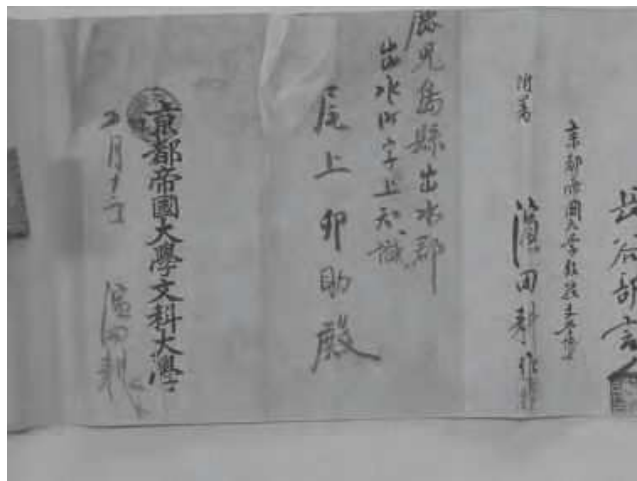 長谷部言人
京都帝國大学教授文学博士
濱田耕作
附箋
鹿児島縣出水郡
出水町字上知識
尾上卯助殿
京都帝國大學文科大學
二月十二
濱田耕作